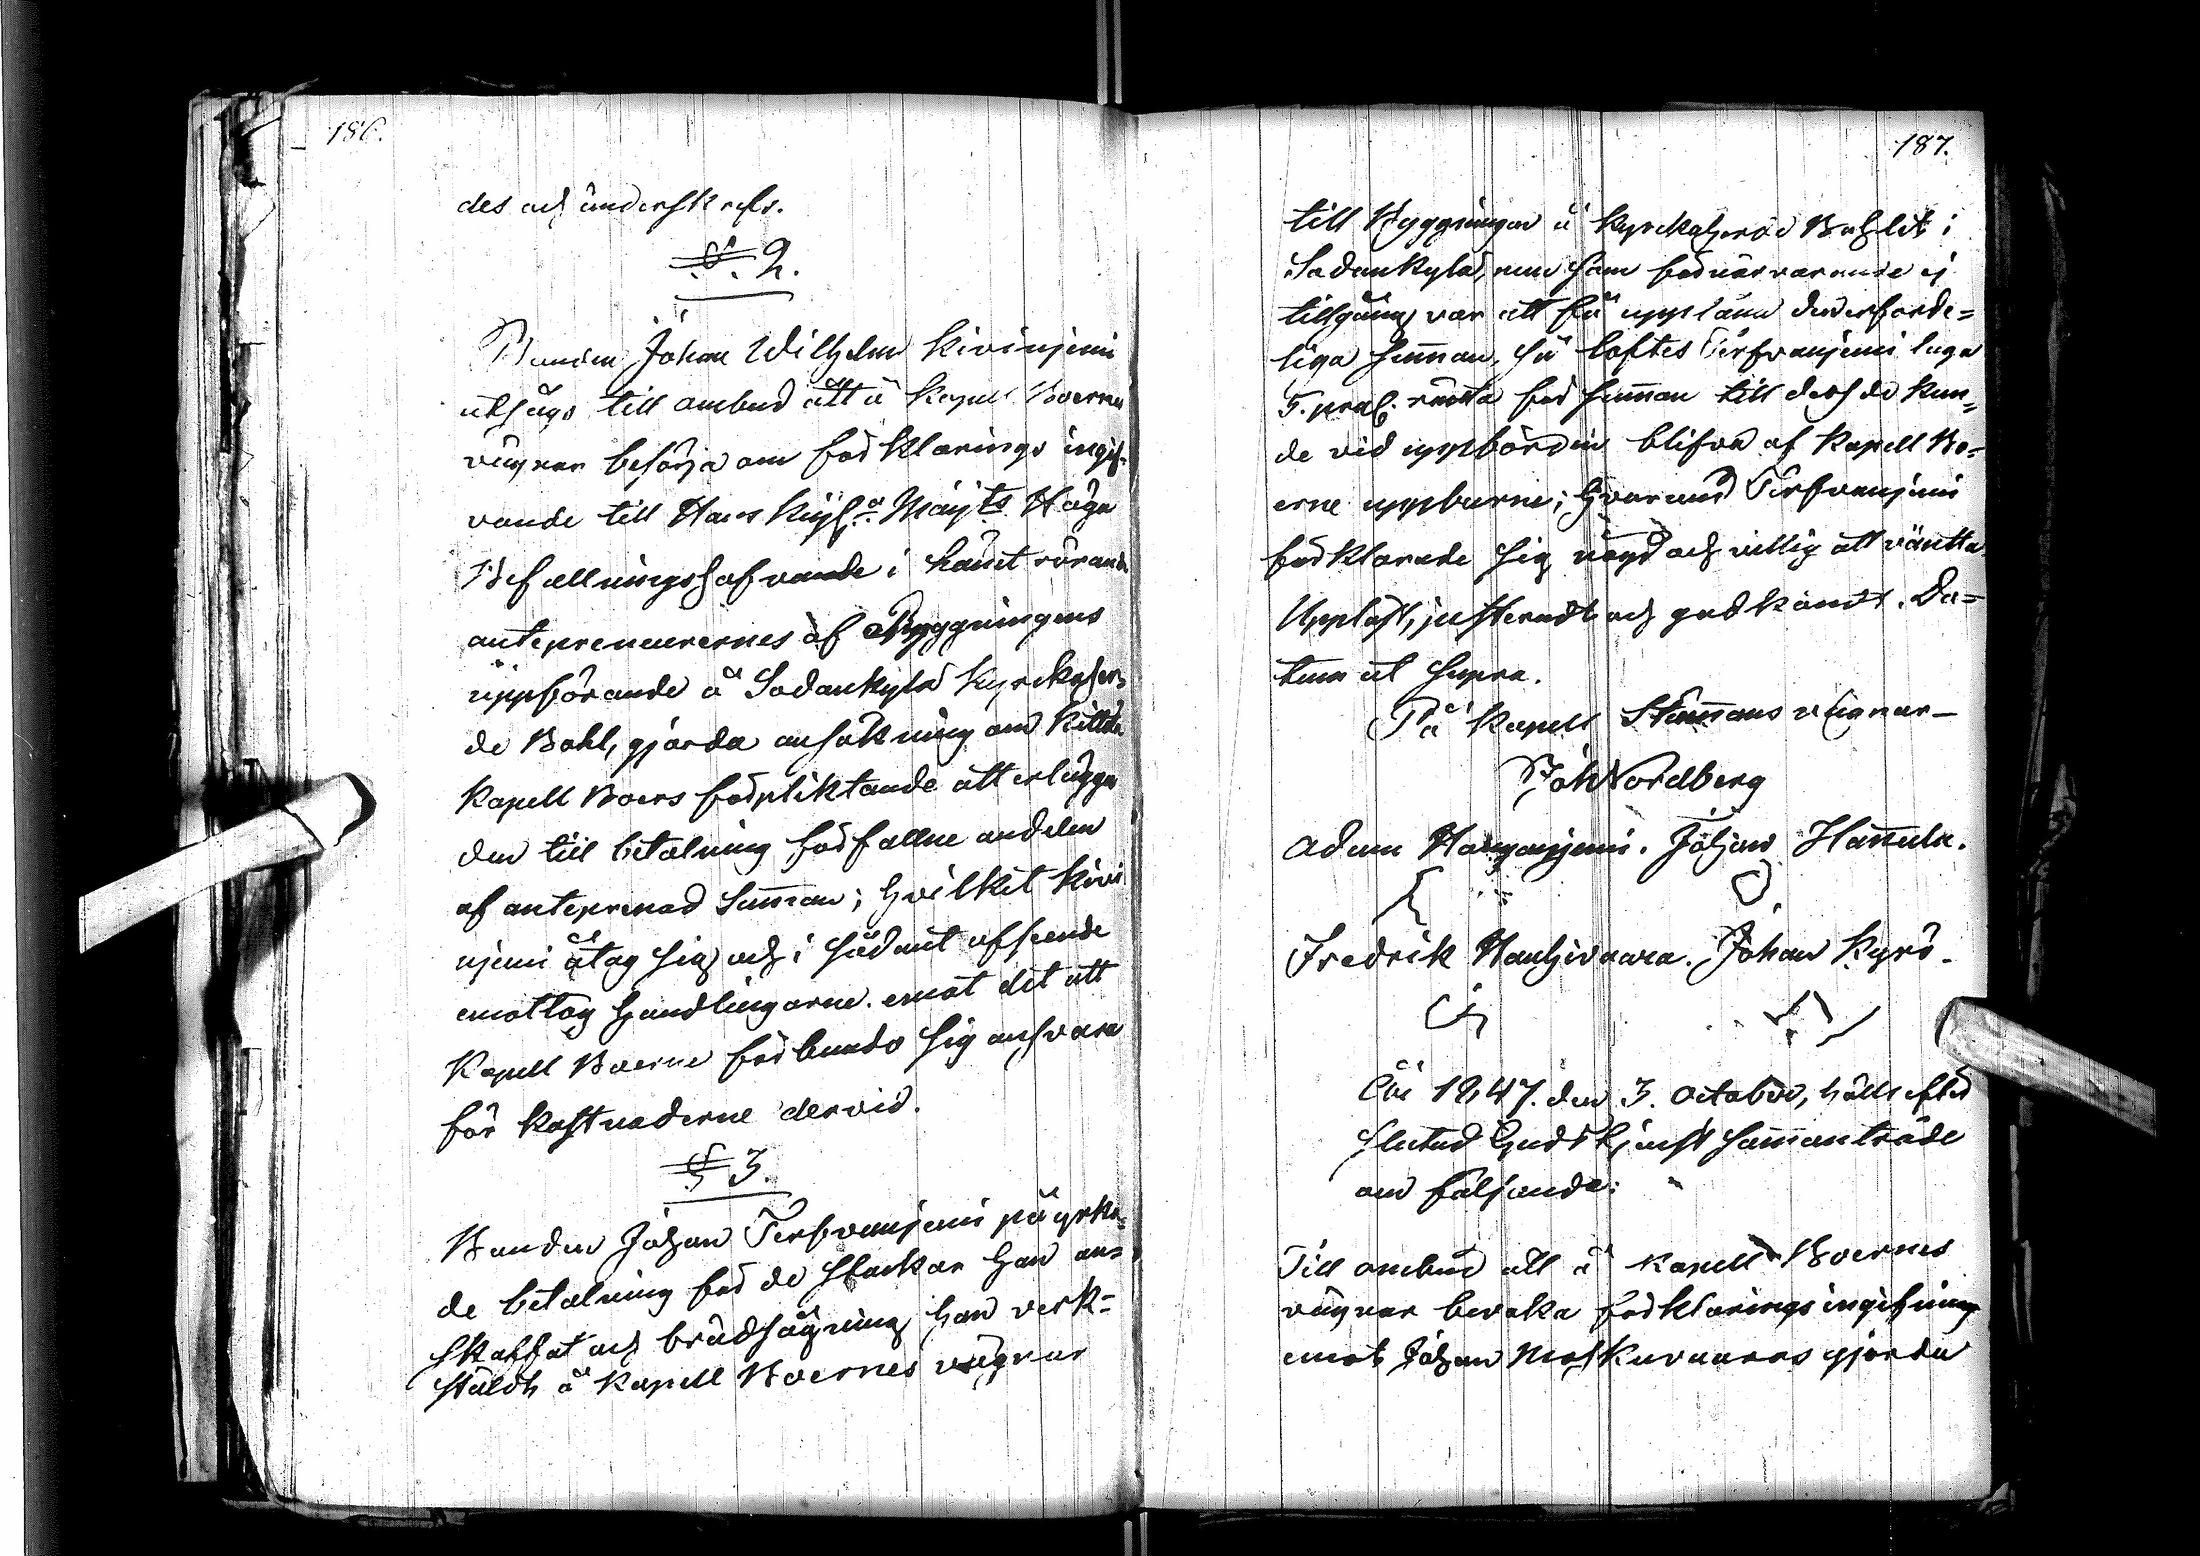 186.
des och underskrefs.
§. 2.
Bonden Johan Wilhelm Kiviniemi
utsågs till ombud att å Kapell Boernes
vägnar besörja om förklarings ingif-
vande till Hans Kejs.a Maj:ts Höga
Befallningshafvande i länet rörande
antepreneurernes af Byggningens
uppförande å Sodankylä Kyrkoher-
de Bohl, gjorda ansökning om Kittilä
Kapell Boers förpliktande att erlägga
den till betalning förfallne andelen
af anteprenad Summan; hvilket Kivi
niemi åtog sig och i sådant afseende
emottog handlingarne. emot det att
Kapell Boerne förbundo sig ansvara
för kostnaderne dervid.
§ 3.
Bonden Johan Terfvaniemi påyrka-
de betalning för de stockar han an-
skaffat och brädsågning han verk-
stäldt å Kapell Boernes vägnar
187.
till Byggningen å Kyrkoherde Bohlet i
Sodankylä, men som förnärvarande ej
tillgång var att få upplåna den erforde-
liga summan, så loftes Terfvaniemi laga
5. proc. ränta för summan till dess de kun-
de vid uppbörden blifva af Kapell Bo-
erne uppburne; hvarmed Terfvaniemi
förklarade sig nögd och villig att vänta
Uppläst, justeradt och godkändt. Da-
tum ut supra.
På Kapell Stämans vägnar-
Joh Nordberg
Adam Johan Hannula.
Fredrik Johan Kyrö.
År 1847. den 3. October, hölls efter
slutad Gudstjenst sammanträde
om följande:
Till ombud att å Kapell Boernes
vägnar bevaka förklarings ingifning
emot Johan Moskuvaaras gjorda